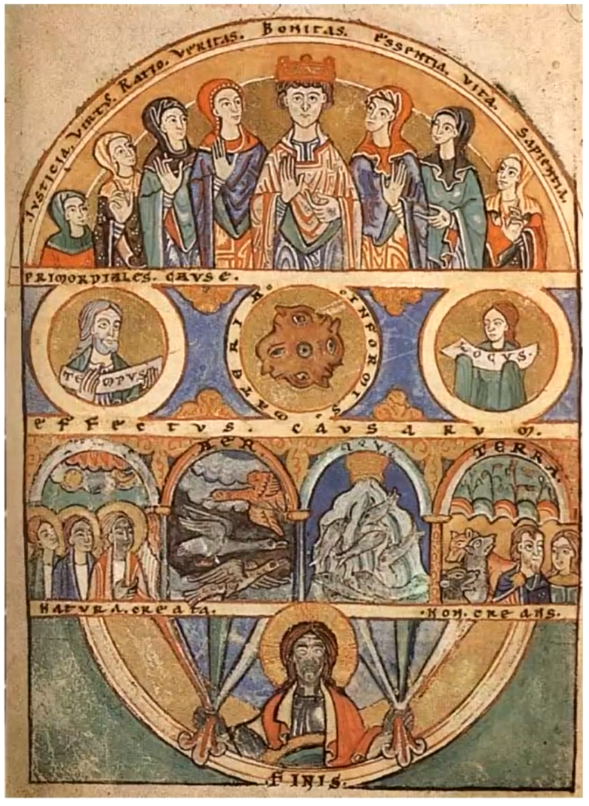 IVSTICIA. VIRTVS. RATIO. VERITAS. BONITAS. ESSENTIA. VITA. SAPIENTIA.
PRIMORDIALES. CAVSE.
TEMPVS
MATERIA. INFORMIS.
LOCVS.
EFFECTVS. CAVSARVM.
AER
AQVA
TERRA
NATVRA. CREATA. .NON. CREANS.
.FINIS.